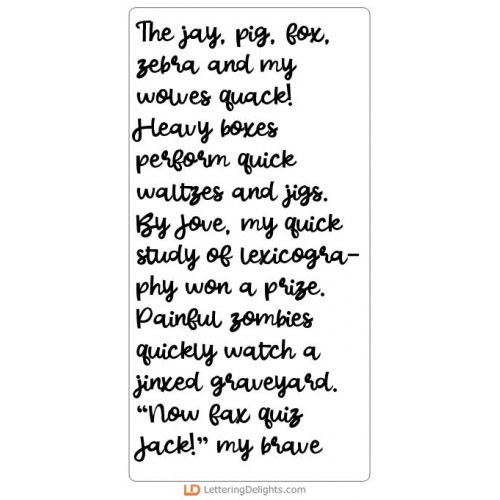 The jay, pig, fox,
zebra and my
wolves quack!
Heavy boxes
perform quick
waltzes and jigs.
By Jove, my quick
study of lexicogra-
phy won a prize.
Painful zombies
quickly watch a
jinxed graveyard.
“Now fax quiz
Jack!” my brave
LD LetteringDelights.com